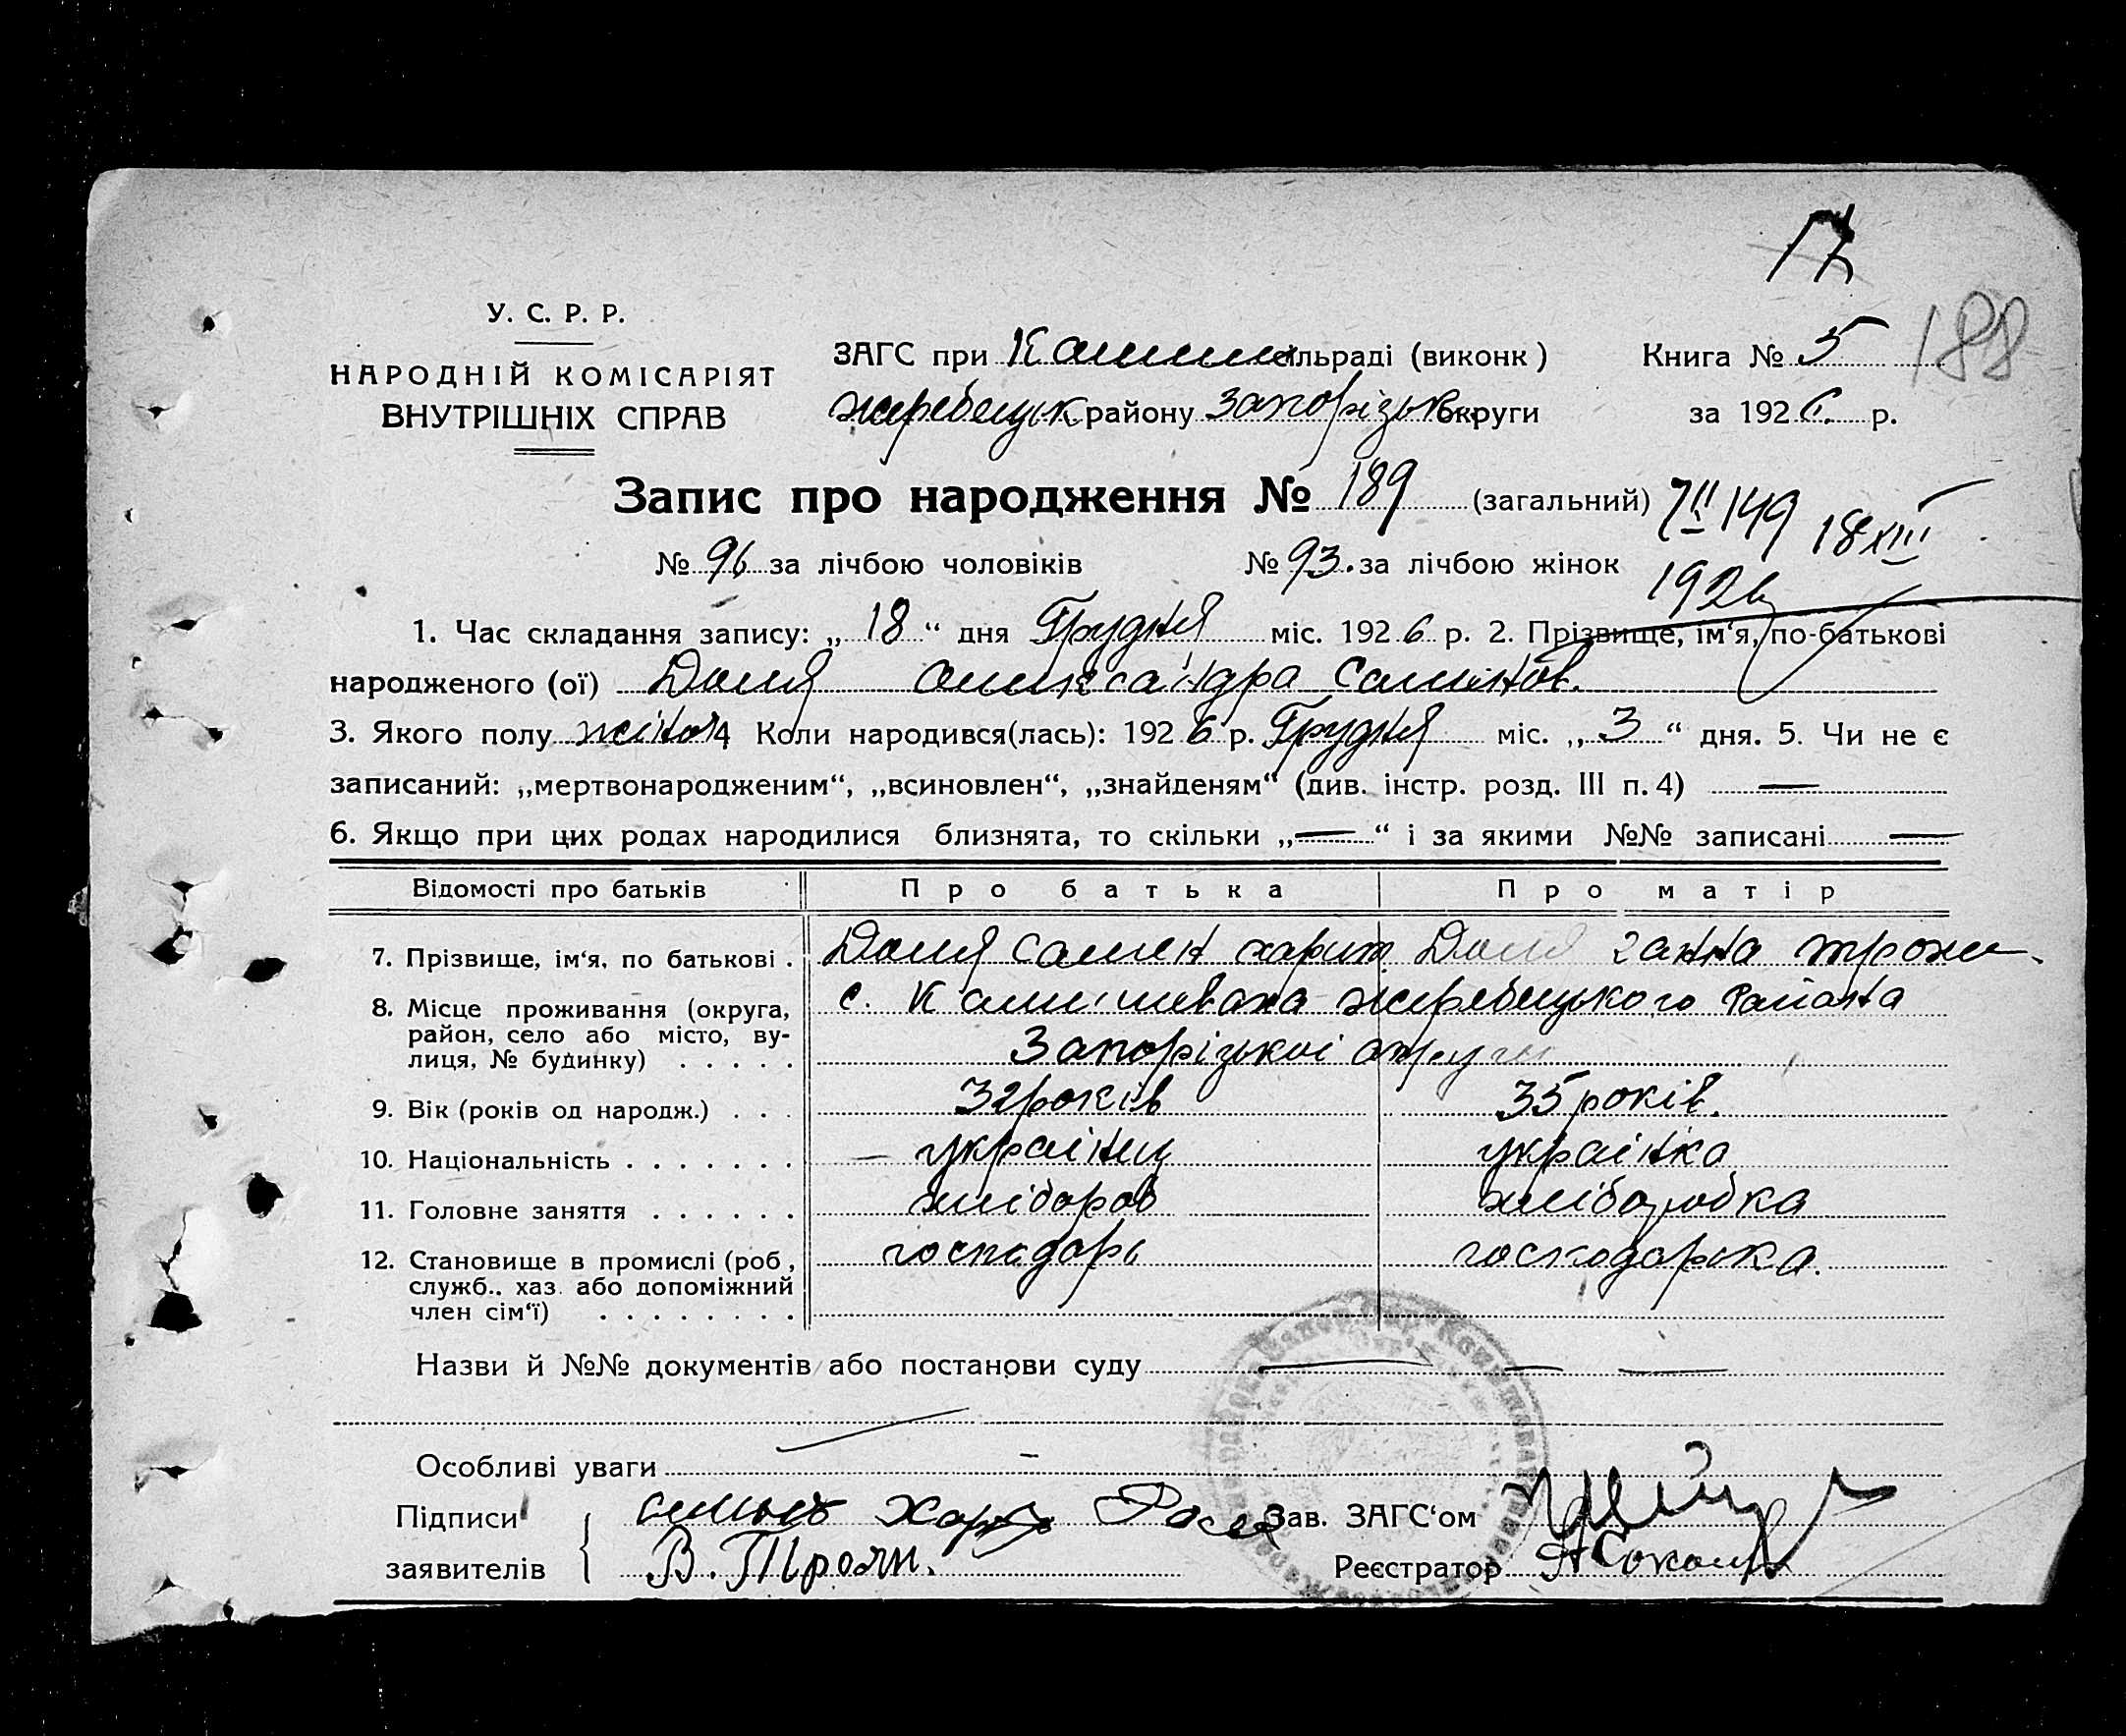 188
У. С. Р. Р.
НАРОДНІЙ КОМІСАРІЯТ
ВНУТРІШНІХ СПРАВ
ЗАГС при сільраді (виконк)
Жеребецьк. району Запорізьк. округи
Книга № 5
за 1926. р.
Запис про народження № 189 (загальний)
№ 96 за лічбою чоловіків № 93. за лічбою жінок
149 18 XII
1926
1. Час складання запису: „ 18 “ дня Грудня міс. 1926 р. 2. Прізвище, ім‘я, по-батькові
народженого (ої) Доля
3. Якого полу жіноч 4 Коли народився(лась): 1926 р. Грудня міс. „ 3 “ дня. 5. Чи не є
записаний: „мертвонародженим“, „всиновлен“, „знайденям“ (див. інстр. розд. III п. 4) —
6. Якщо при цих родах народилися близнята, то скільки „—“ і за якими №№ записані —
Відомості про батьків Про батька Про матір
7. Прізвище, ім‘я, по батькові . Доля Самен харит. Доля ганна
8. Місце проживання (округа, район, село або місто, вулиця, № будинку) . . . . . с. Камишеваха Жеребецького Района
Запорізької округи
9. Вік (років од народж.) . . . 32 років 35 років.
10. Національність . . . . . . . українец українка
11. Головне заняття . . . . . . хлібороб хліборобка
12. Становище в промислі (роб, служб.. хаз. або допоміжний член сім‘ї) . . . . . . . . господарь господарка.
Назви й №№ документів або постанови суду — — —
Особливі уваги —
Підписи
заявителів
В. Троян.
Зав. ЗАГС‘ом
Реєстратор